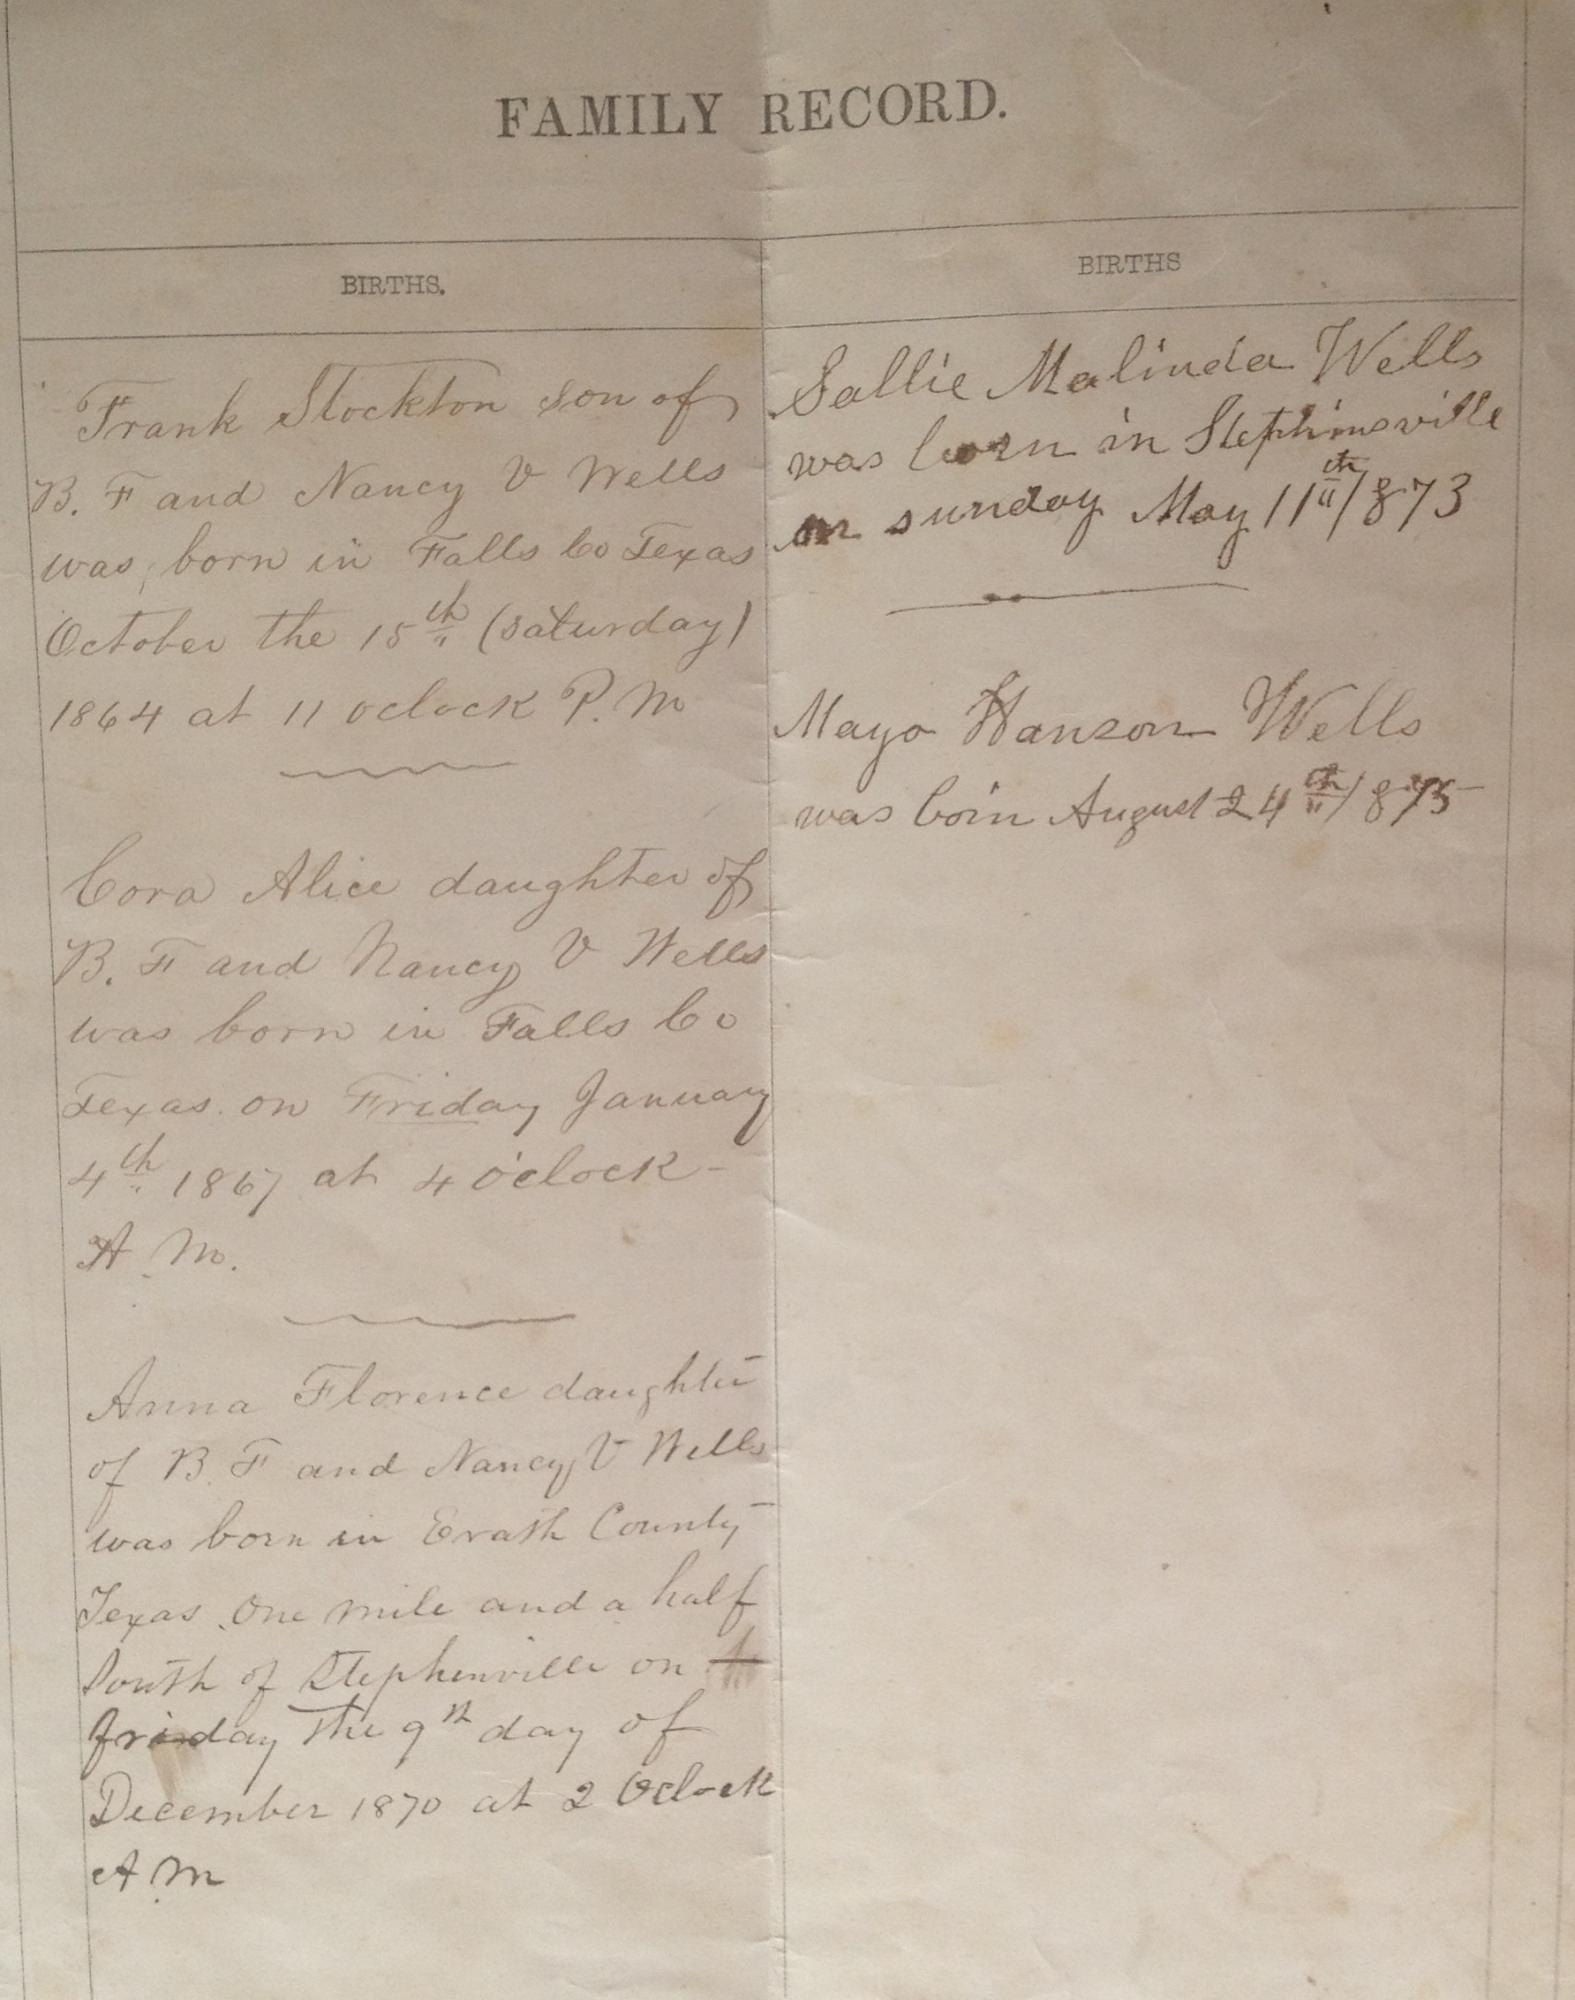 FAMILY RECORD.
BIRTHS.
Frank Stockton son of
B. F and Nancy V Wells
was born in Falls Co Texas
October the 15th (saturday)
1864 at 11 oclock P. M
Cora Alice daughter of
B. F and Nancy V Wells
was born in Falls Co
Texas. on Friday January
4th 1867 at 4 o'clock -
A. M.
Anna Florence daughter
of B. F and Nancy V Wells
was born in Erath County
Texas. One mile and a half
South of Stephenville on
friday The 9th day of
December 1870 at 2 Oclock
A. M
BIRTHS
Sallie Malinda Wells
was born in Stephinsville
on sunday May 11th 1873
Mayo Hanson Wells
was born August 24th 1875